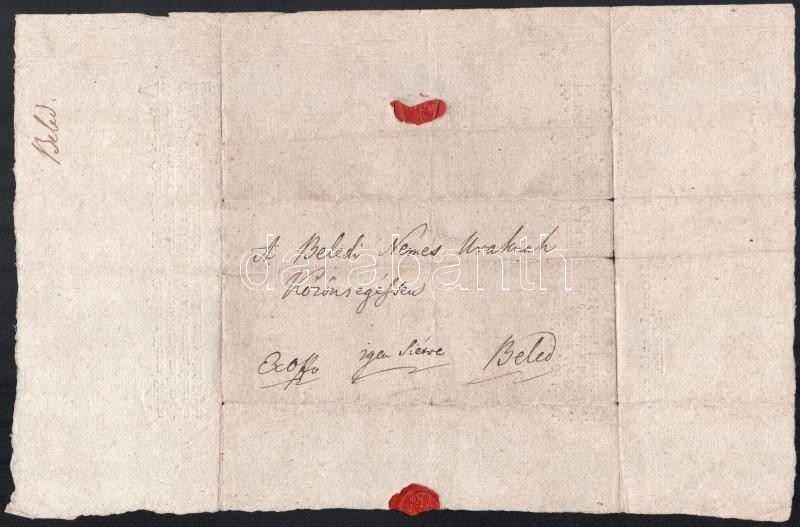 Beled.
A Beledi Nemes Uraknak
Közönségessen
Exoffo igen Siétve Beled
darabanth